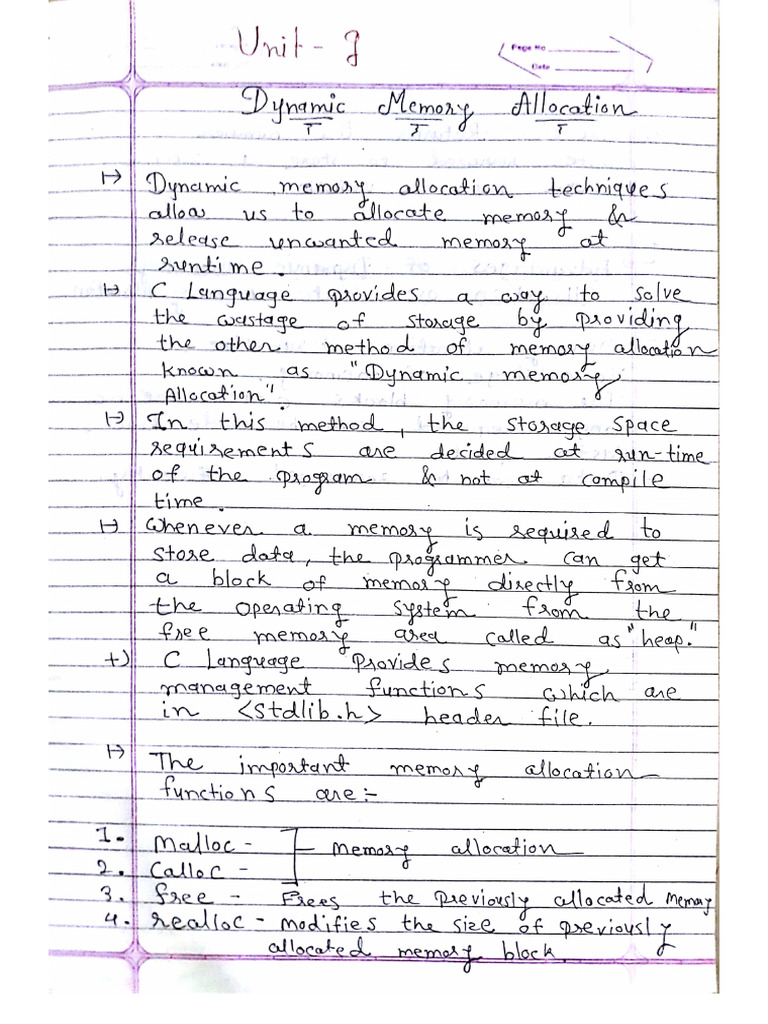 Unit - I
Page No
Date
Dynamic Memory Allocation
Dynamic memory allocation techniques
allow us to allocate memory &
release unwanted memory at
runtime.
C Language provides a way to solve
the wastage of storage by providing
the other method of memory allocation
known as "Dynamic memory
Allocation".
In this method, the storage space
requirements are decided at run-time
of the program & not at compile
time.
Whenever a memory is required to
store data, the programmer can get
a block of memory directly from
the operating system from the
free memory area called as "heap."
C Language Provides memory
management functions which are
in <stdlib.h> header file.
The important memory allocation
functions are:-
1. Malloc - Memory allocation
2. Calloc -
3. free - Frees the previously allocated Memory
4. realloc - modifies the size of previously
allocated memory block.